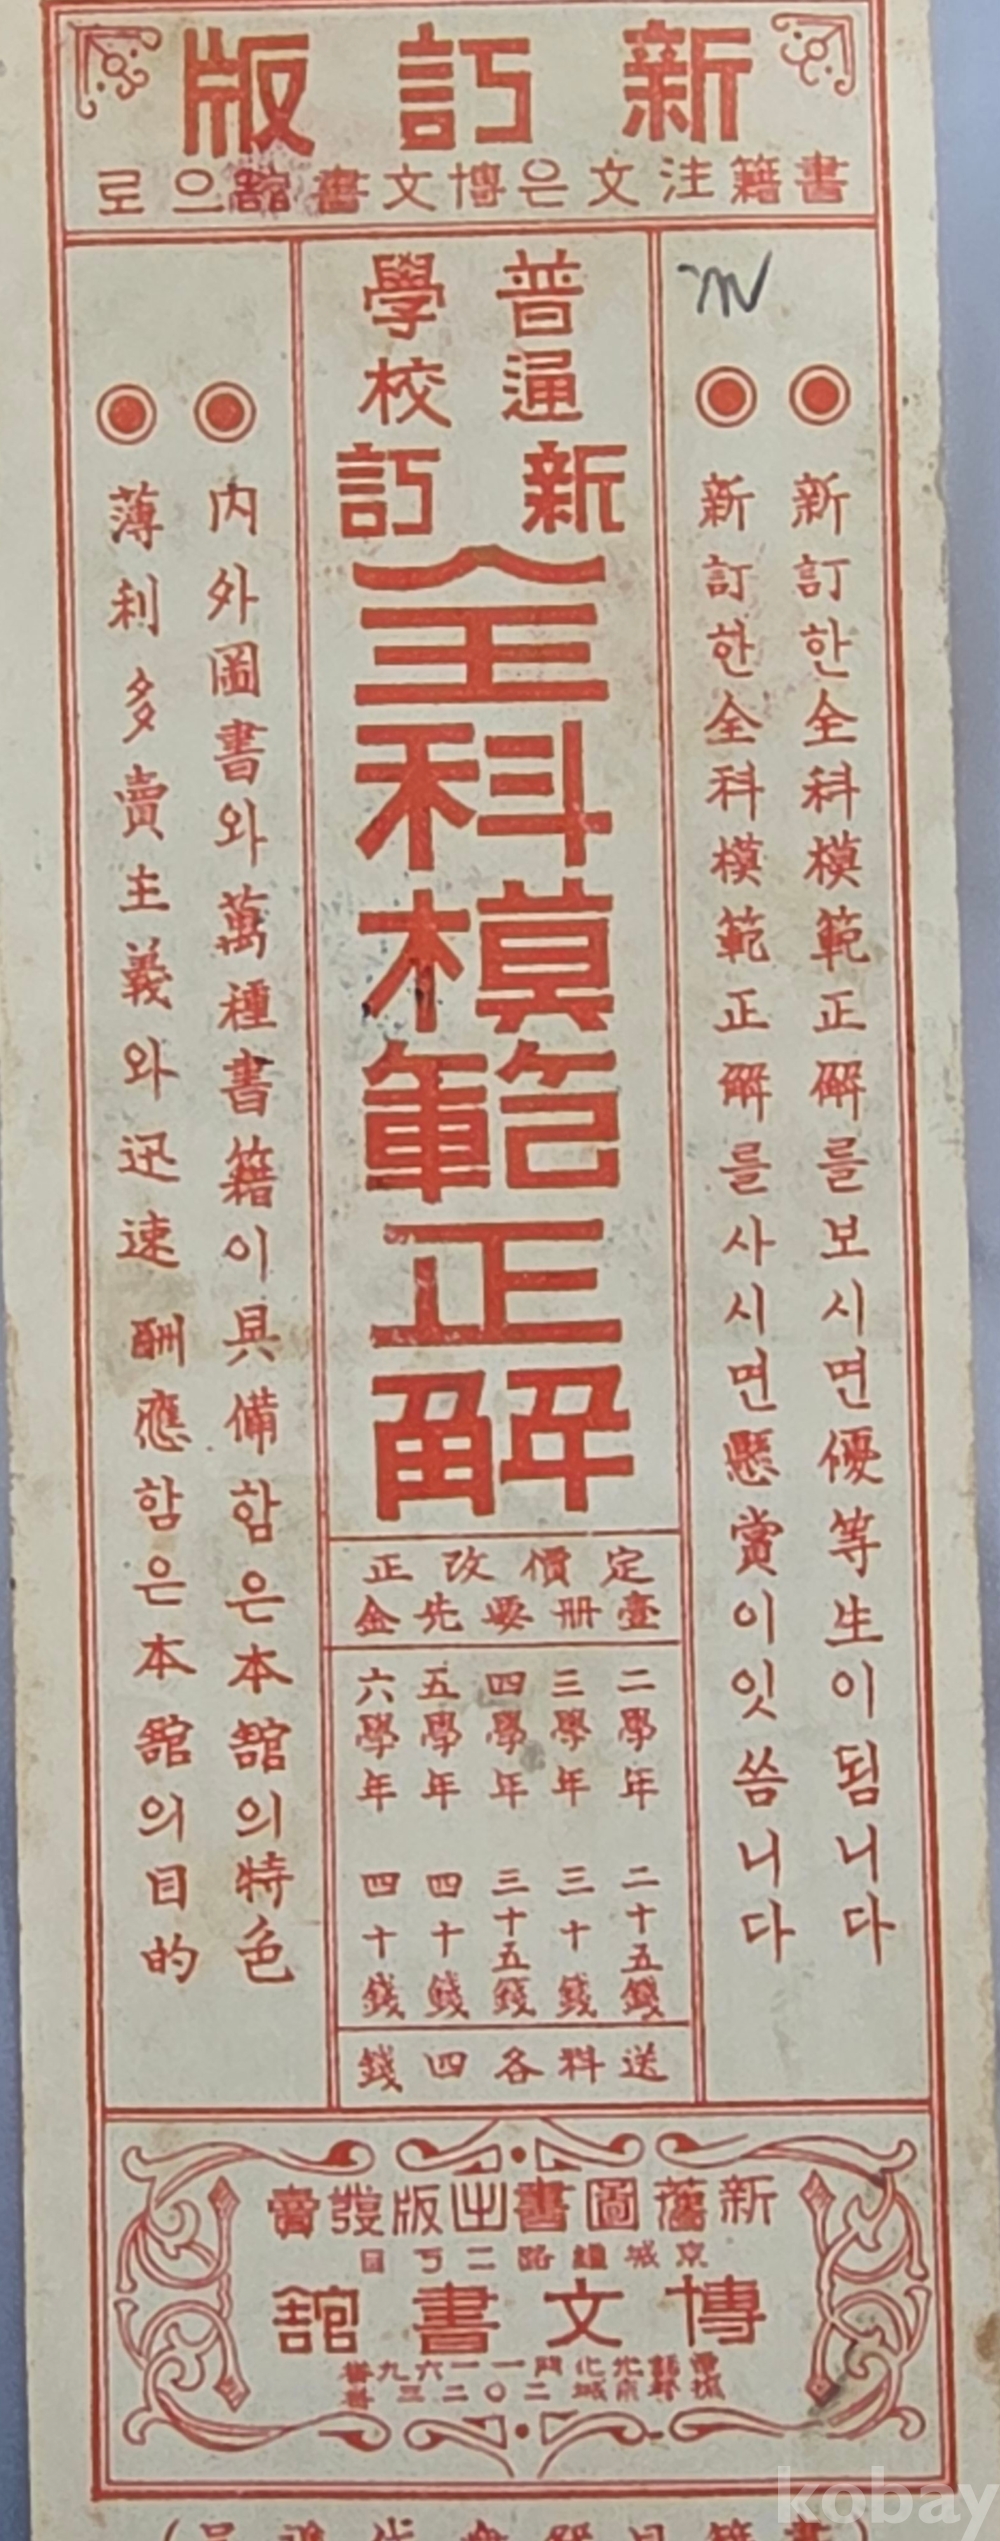 新訂版
書籍注文은博文書舘으로
◉新訂한全科模範正解를보시면優等生이됨니다
◉新訂한全科模範正解를사시면懸賞이잇씀니다
普通
學校
新訂
全科模範正解
定價改正
壹冊要先金
二學年 二十五錢
三學年 三十錢
四學年 三十五錢
五學年 四十錢
六學年 四十錢
送料各四錢
◉内外圖書와萬種書籍이具備함은本舘의特色
◉薄利多賣主義와迅速酬應함은本舘의目的
新舊圖書出版發賣
京城鍾路二丁目
博文書舘
電話光化門一一六九番
振替京城二〇二三番
kobay